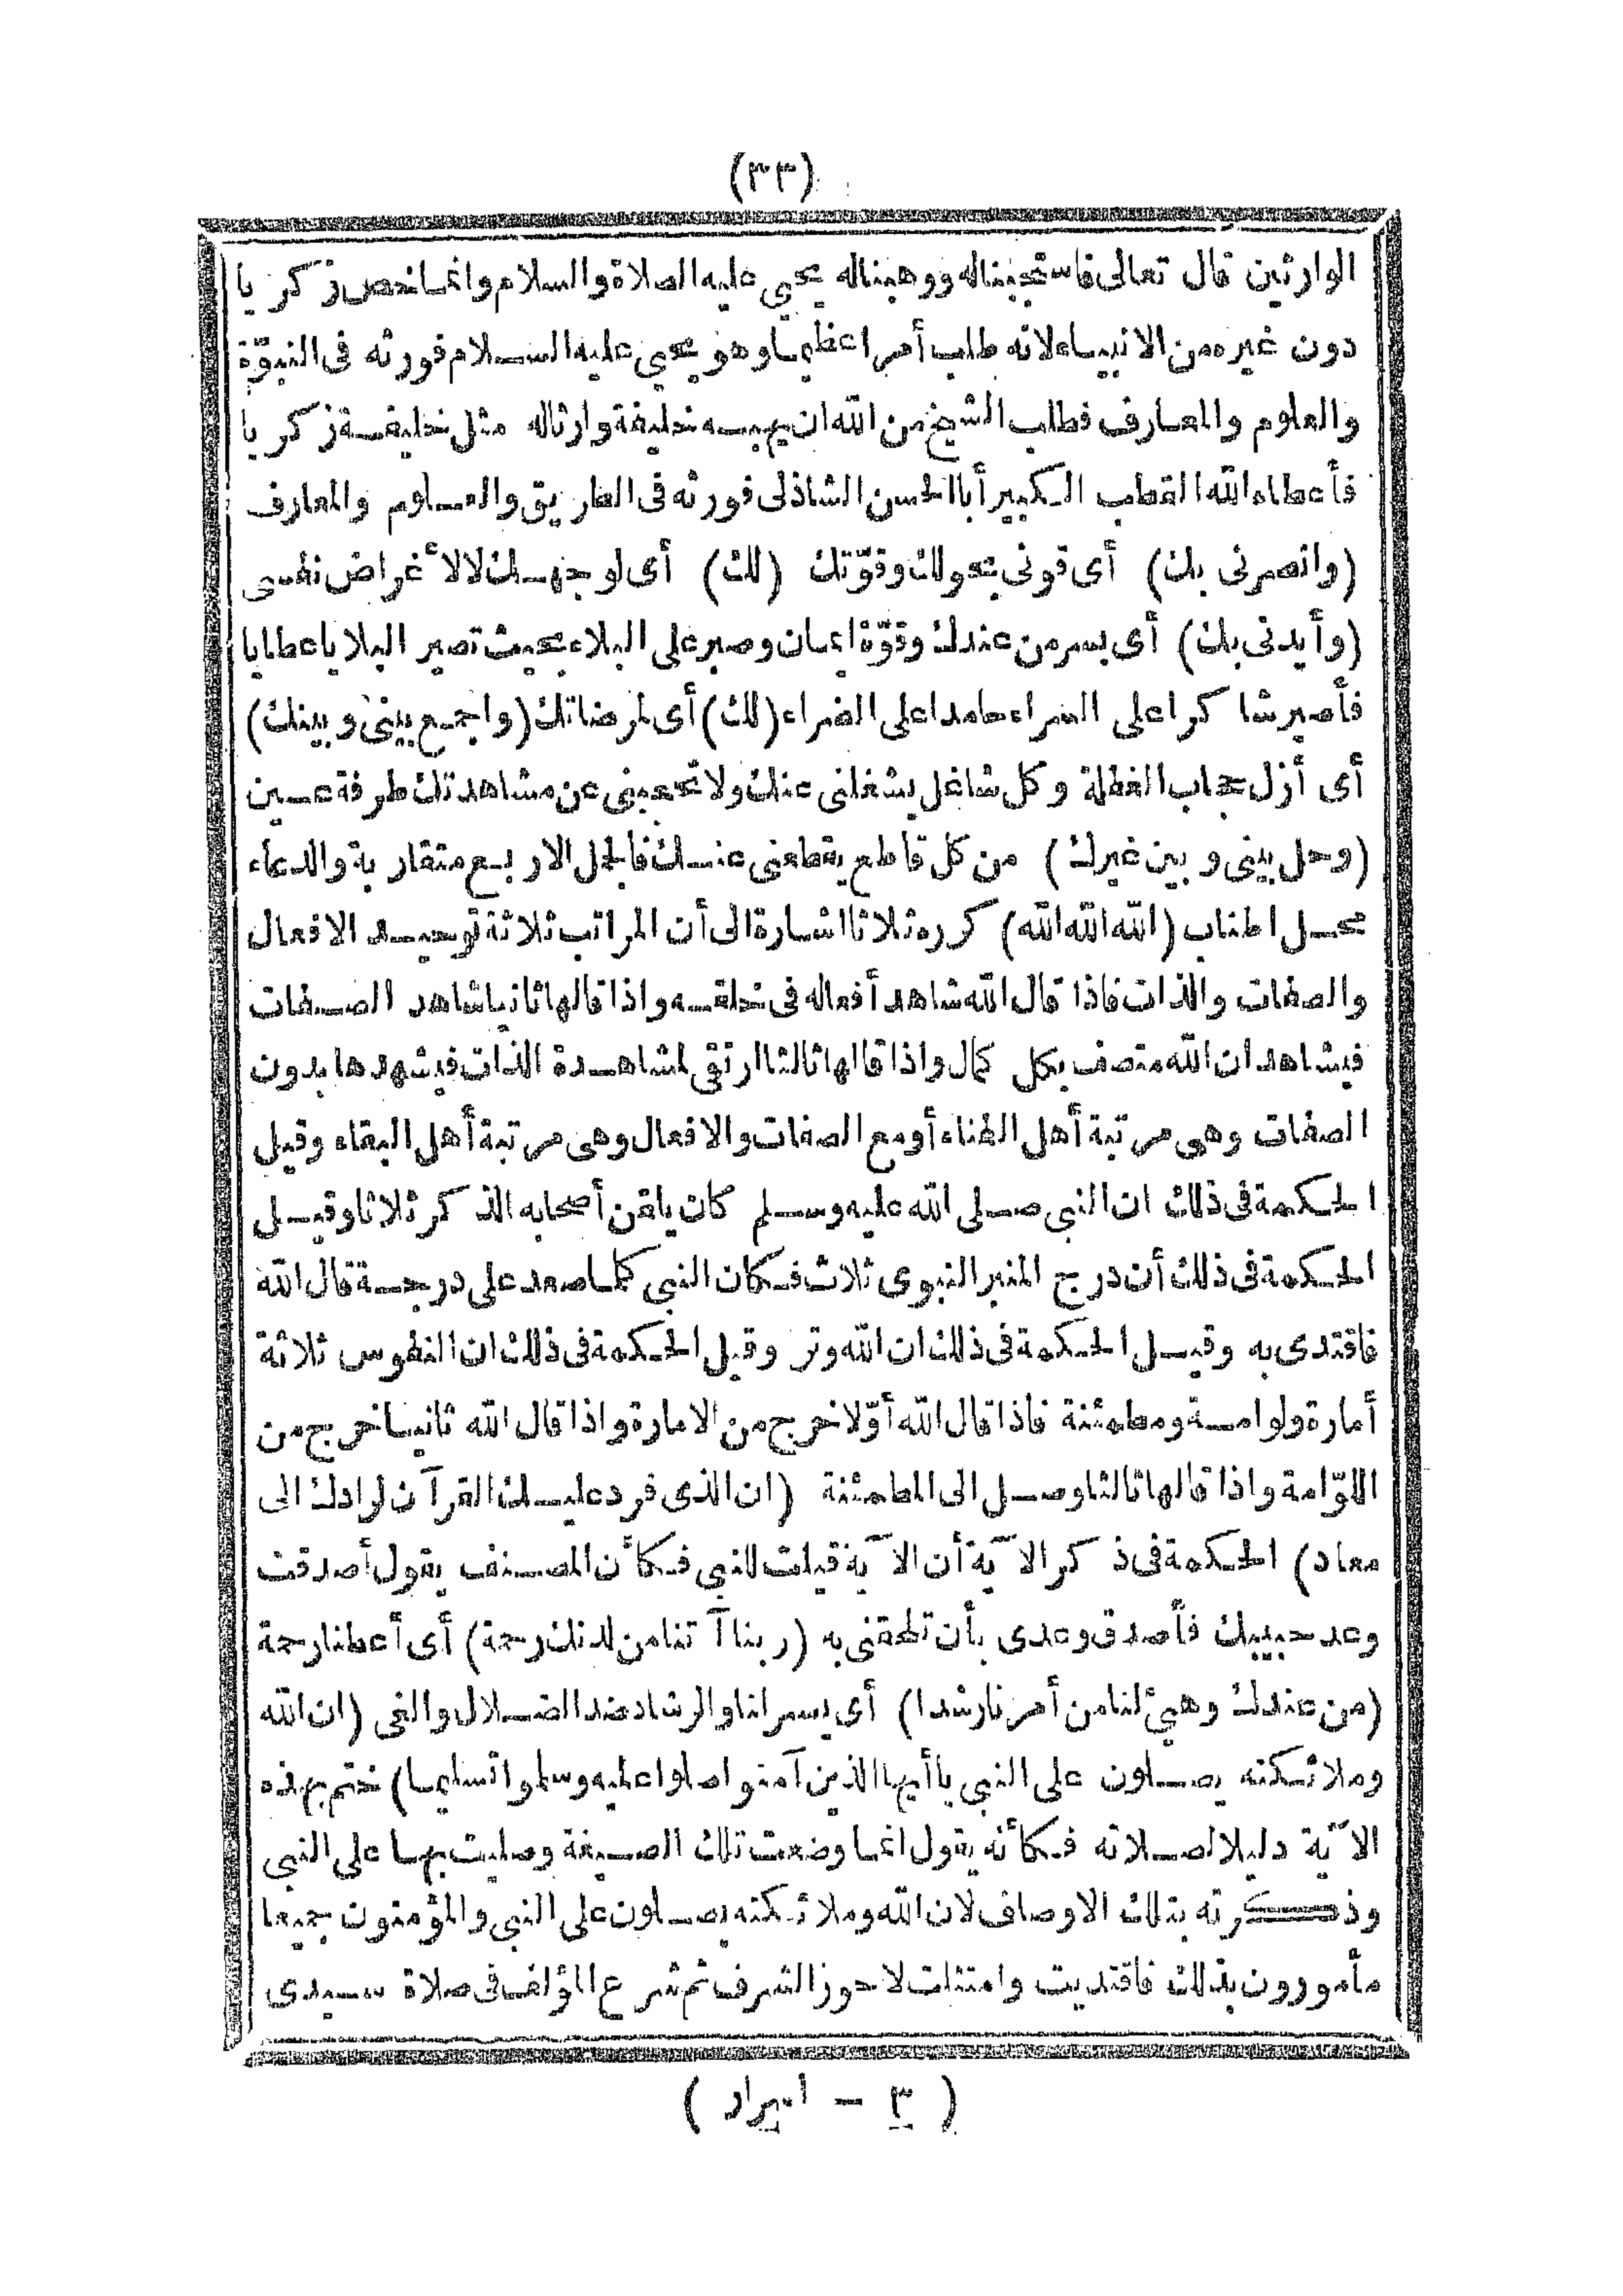 (٣٣)
الوارثين قال تعالى فاستجبنا له ووهبنا له يحيى عليه الصلاة والسلام وانما خص زكريا
دون غيره من الانبياء لانه طلب أمرا عظيما وهو يحيى عليه السلام فورثه فى النبوّة
والعلوم والمعارف فطلب الشيخ من الله ان يهبه خليفة وارثا له مثل خليفة زكريا
فأعطاه الله القطب الكبير أبا الحسن الشاذلى فورثه فى الطريق والعلوم والمعارف
(وانصرنى بك) أى قونى بحولك وقوّتك (لك) أى لوجهك لا لأغراض نفسى
(وأيدنى بك) أى بسر من عندك وقوّة ايمان وصبر على البلاء بحيث تصير البلايا عطايا
فأصير شاكرا على السراء حامدا على الضراء (لك) أى لمرضاتك (واجمع بينى وبينك)
أى أزل حجاب الغفلة وكل شاغل يشغلنى عنك ولا تحجبنى عن مشاهدتك طرفة عين
(وحل بينى وبين غيرك) من كل قاطع يقطعنى عنك فالجمل الاربع متقاربة والدعاء
محل اطناب (الله الله الله) كرره ثلاثا اشارة الى أن المراتب ثلاثة توحيد الافعال
والصفات والذات فاذا قال الله شاهد أفعاله فى خلقه واذا قالها ثانيا شاهد الصفات
فيشاهد ان الله متصف بكل كمال واذا قالها ثالثا ارتقى لمشاهدة الذات فيشهدها بدون
الصفات وهى مرتبة أهل الفناء أو مع الصفات والافعال وهى مرتبة أهل البقاء وقيل
الحكمة فى ذلك ان النبى صلى الله عليه وسلم كان يلقن أصحابه الذكر ثلاثا وقيل
الحكمة فى ذلك أن درج المنبر النبوى ثلاث فكان النبى كلما صعد على درجة قال الله
فاقتدى به وقيل الحكمة فى ذلك ان الله وتر وقيل الحكمة فى ذلك ان النفوس ثلاثة
أمارة ولوامة ومطمئنة فاذا قال الله أوّلا خرج من الامارة واذا قال الله ثانيا خرج من
اللوّامة واذا قالها ثالثا وصل الى المطمئنة (ان الذى فرد عليك القرآن لرادك الى
معاد) الحكمة فى ذكر الآية أن الآية قيلت للنبى فكأن المصنف يقول أصدقت
وعد حبيبك فأصدق وعدى بأن تلحقنى به (ربنا آتنا من لدنك رحمة) أى أعطنا رحمة
(من عندك وهيئ لنا من أمرنا رشدا) أى يسر لنا والرشاد ضد الضلال والغى (ان الله
وملائكته يصلون على النبى يا أيها الذين آمنوا صلوا عليه وسلموا تسليما) ختم بهذه
الآية دليلا لصلاته فكأنه يقول انما وضعت تلك الصيغة وصليت بها على النبى
وذكرته بتلك الاوصاف لان الله وملائكته يصلون على النبى والمؤمنون جميعا
مأمورون بذلك فاقتديت وامتثلت لاحوز الشرف ثم شرع المؤلف فى صلاة سيدى
(٣ - ايراد)